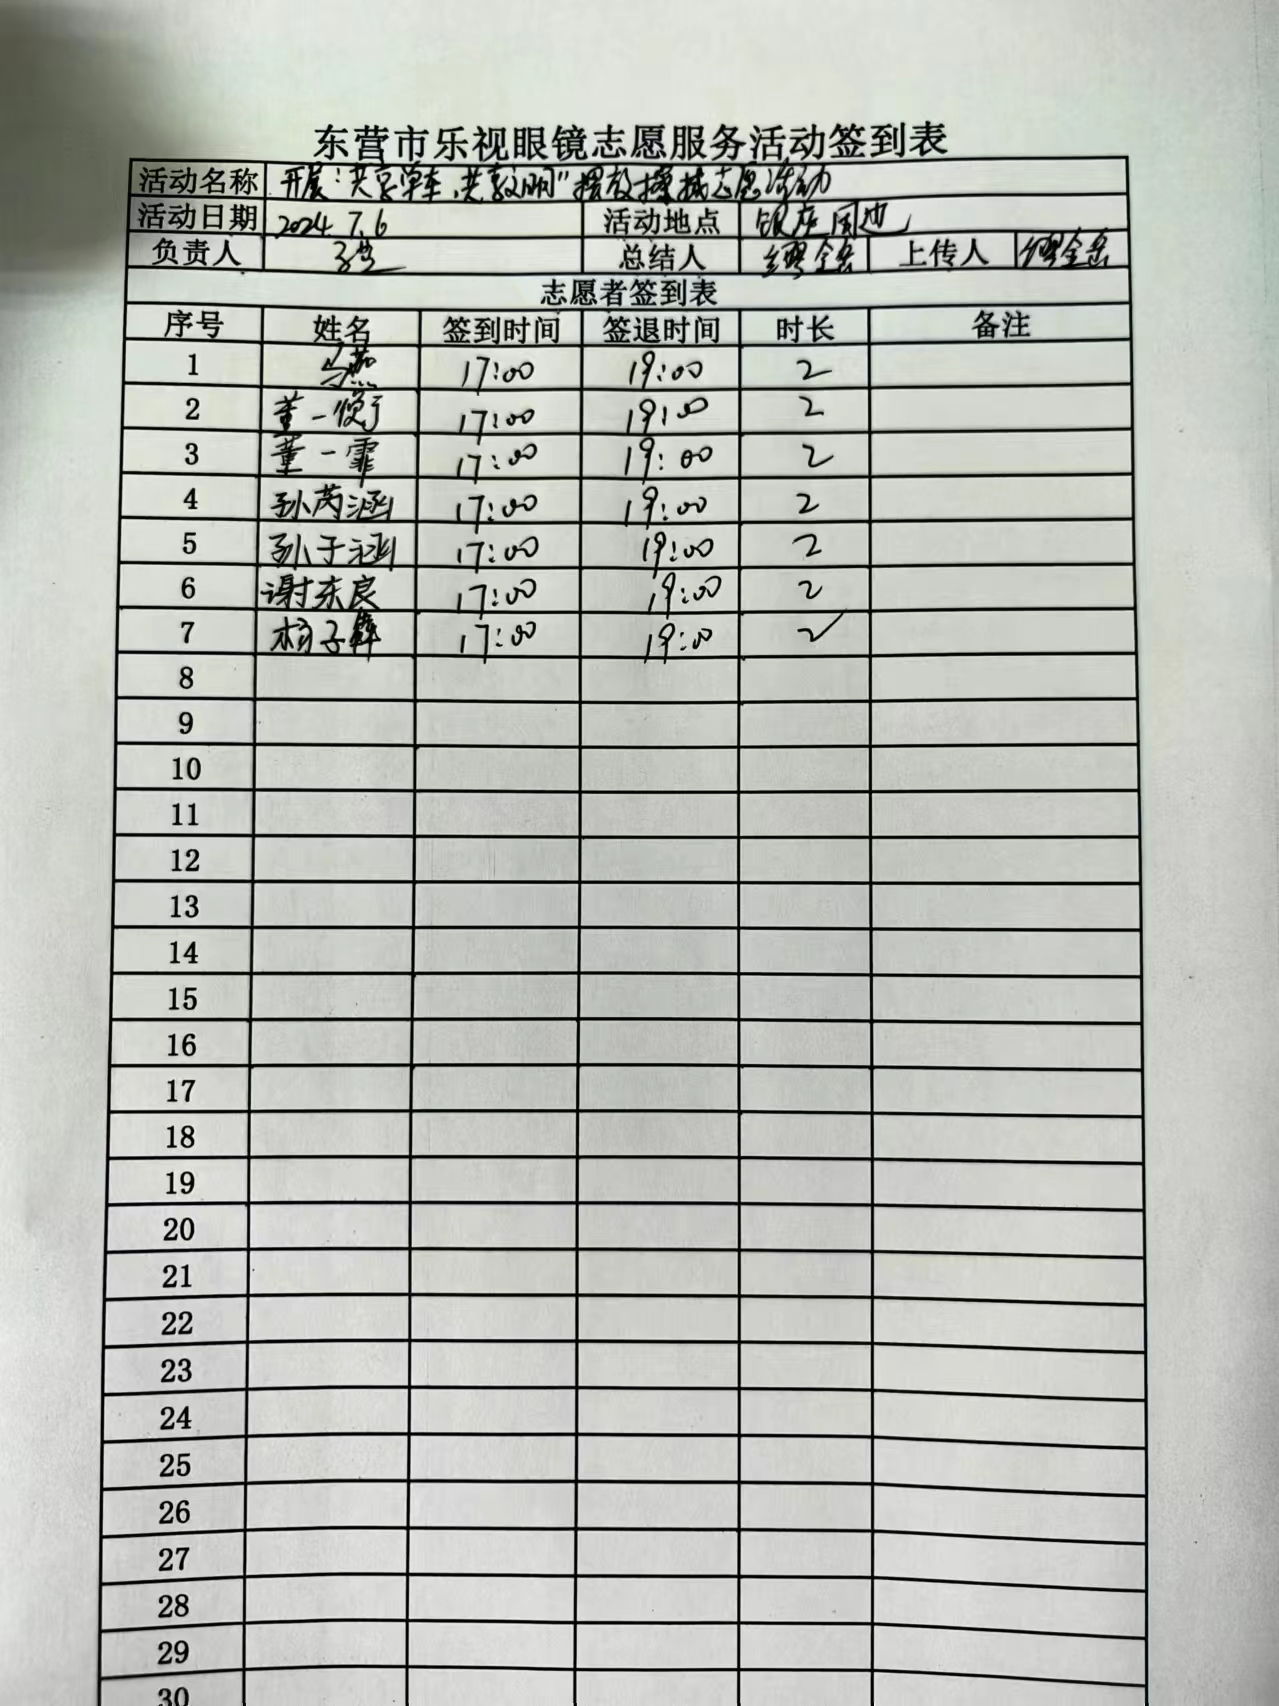 东营市乐视眼镜志愿服务活动签到表
活动名称 开展"共享单车,共享文明"摆放擦拭志愿活动
活动日期 2024.7.6 活动地点 银座周边
负责人 总结人 上传人
志愿者签到表
序号 姓名 签到时间 签退时间 时长 备注
1 17:00 19:00 2
2 董一 17:00 19:00 2
3 董一霏 17:00 19:00 2
4 孙芮涵 17:00 19:00 2
5 孙于涵 17:00 19:00 2
6 谢东良 17:00 19:00 2
7 杨子 17:00 19:00 2
8
9
10
11
12
13
14
15
16
17
18
19
20
21
22
23
24
25
26
27
28
29
30